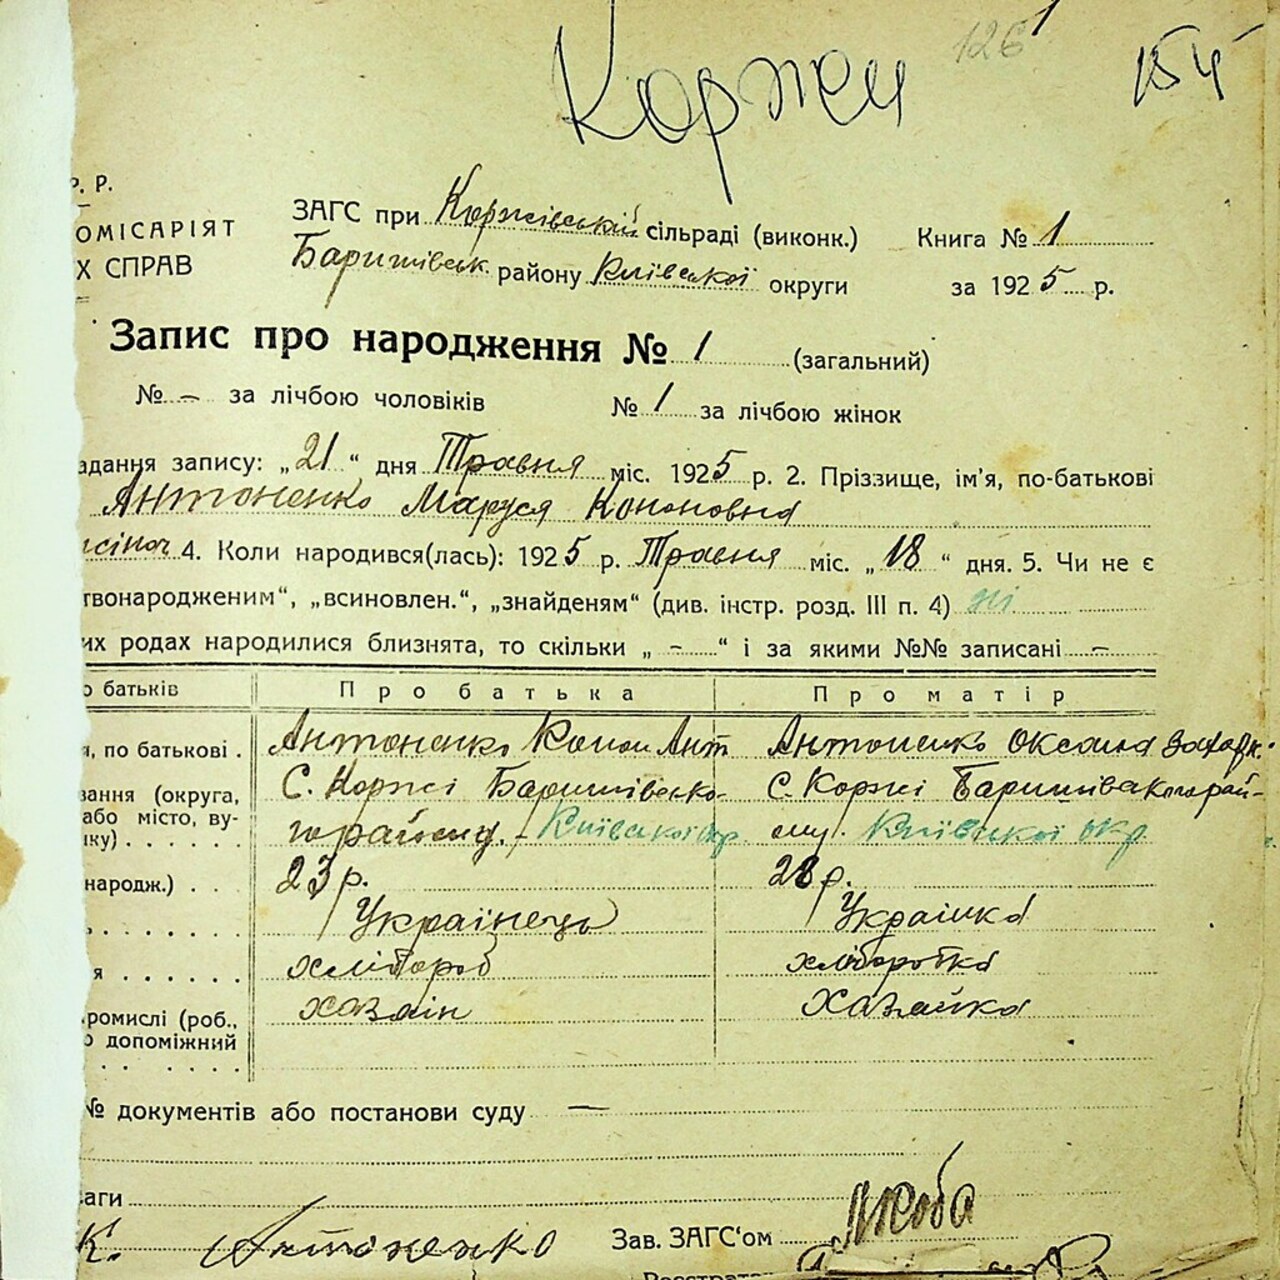 Коржи 126 154
Р. Р.
ОМІСАРІЯТ
Х СПРАВ
ЗАГС при Коржівській сільраді (виконк.) Книга № 1
Баришівськ. району Київської округи за 1925 р.
Запис про народження № 1 (загальний)
№ - за лічбою чоловіків № 1 за лічбою жінок
адання запису: „21“ дня Травня міс. 1925 р. 2. Пріззище, ім'я, по-батькові
Антоненко Маруся Кононовна
4. Коли народився(лась): 1925 р. Травня міс. „18“ дня. 5. Чи не є
твонародженим“, „всиновлен.“, „знайденям“ (див. інстр. розд. III п. 4) ні
их родах народилися близнята, то скільки „ - “ і за якими №№ записані -
о батьків Про батька Про матір
я, по батькові . Антоненко Конон Ант Антоненко Оксана Захарк.
вання (округа, С. Коржі Баришівсько- С. Коржі Баришівськогорай-
або місто, ву- горайону. - Київської окр. ону. Київської окр.
іку) . . . . . .
народж.) . . . 23 р. 28 р.
ь. . . . . . . . Українець Українка
я . . . . . . хлібороб хліборобка
ромислі (роб., хазаін Хазяйка
о допоміжний
№ документів або постанови суду —
аги
К. Антоненко Зав. ЗАГС'ом